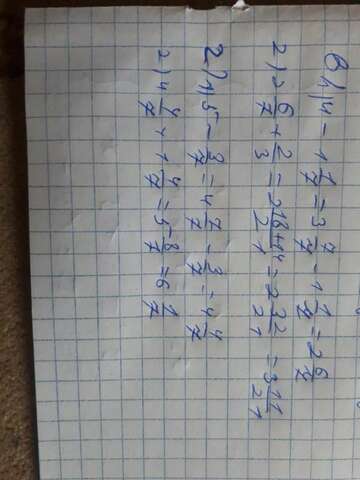 в) 1) 4 - 1 1/7 = 3 7/7 - 1 1/7 = 2 6/7
2) 2 6/7 + 2/3 = 2 18+14/21 = 2 32/21 = 3 11/21
2) 1) 5 - 3/7 = 4 7/7 - 3/7 = 4 4/7
2) 4 4/7 + 1 4/7 = 5 8/7 = 6 1/7